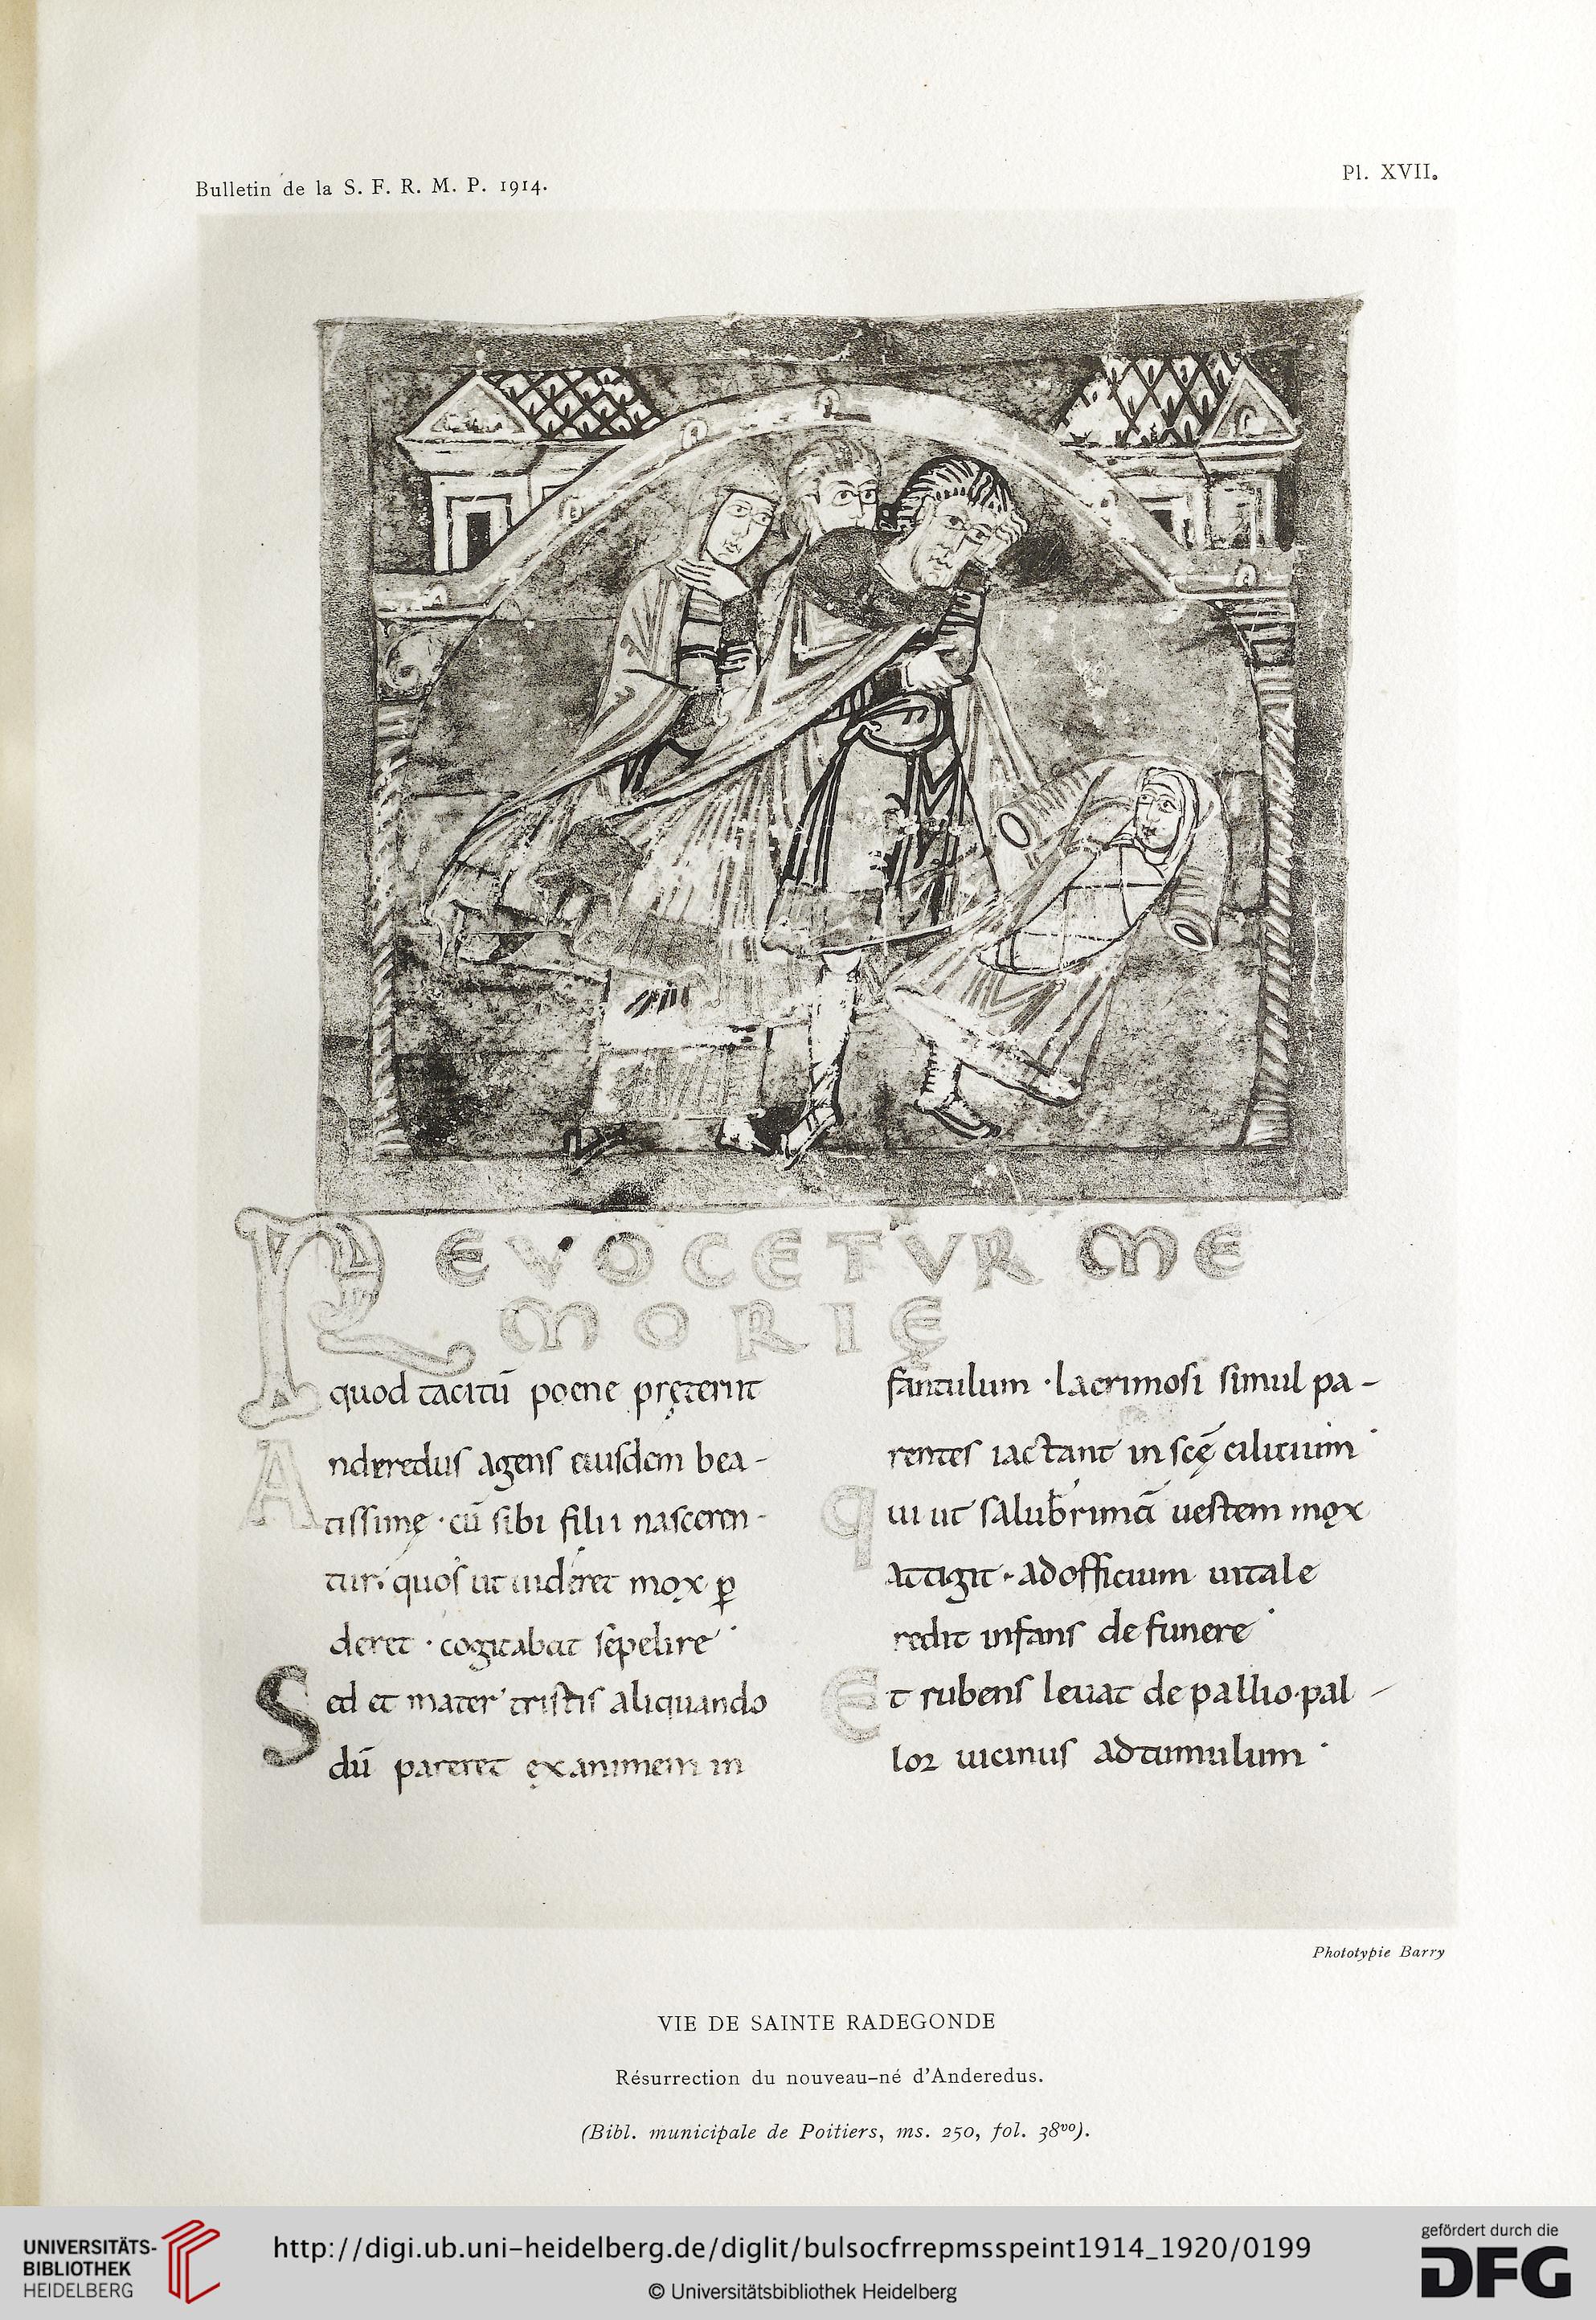 Bulletin de la S. F. R. M. P. 1914.
Pl. XVII.
REVOCETVR ME
MORIĘ
quod tacitū poene pręteriit
Anderedus agens eiusdem bea-
tissimę · cū sibi filii nasceren-
tur · quos ut uideret mox ꝑ
deret · cogitabat sepelire
Sed et mater tristis aliquando
dū pareret exanimem in
fantulum · lacrimosi simul pa-
rentes iactant in scę cilicium
qui ut saluberrimā uestem mox
attigit · ad officium uitale
redit infans de funere
Et rubens leuat de pallio pal-
lor uicinus ad tumulum ·
Phototypie Barry
VIE DE SAINTE RADEGONDE
Résurrection du nouveau-né d'Anderedus.
(Bibl. municipale de Poitiers, ms. 250, fol. 38vo).
UNIVERSITÄTS-
BIBLIOTHEK
HEIDELBERG
http://digi.ub.uni-heidelberg.de/diglit/bulsocfrrepmsspeint1914_1920/0199
© Universitätsbibliothek Heidelberg
gefördert durch die
DFG